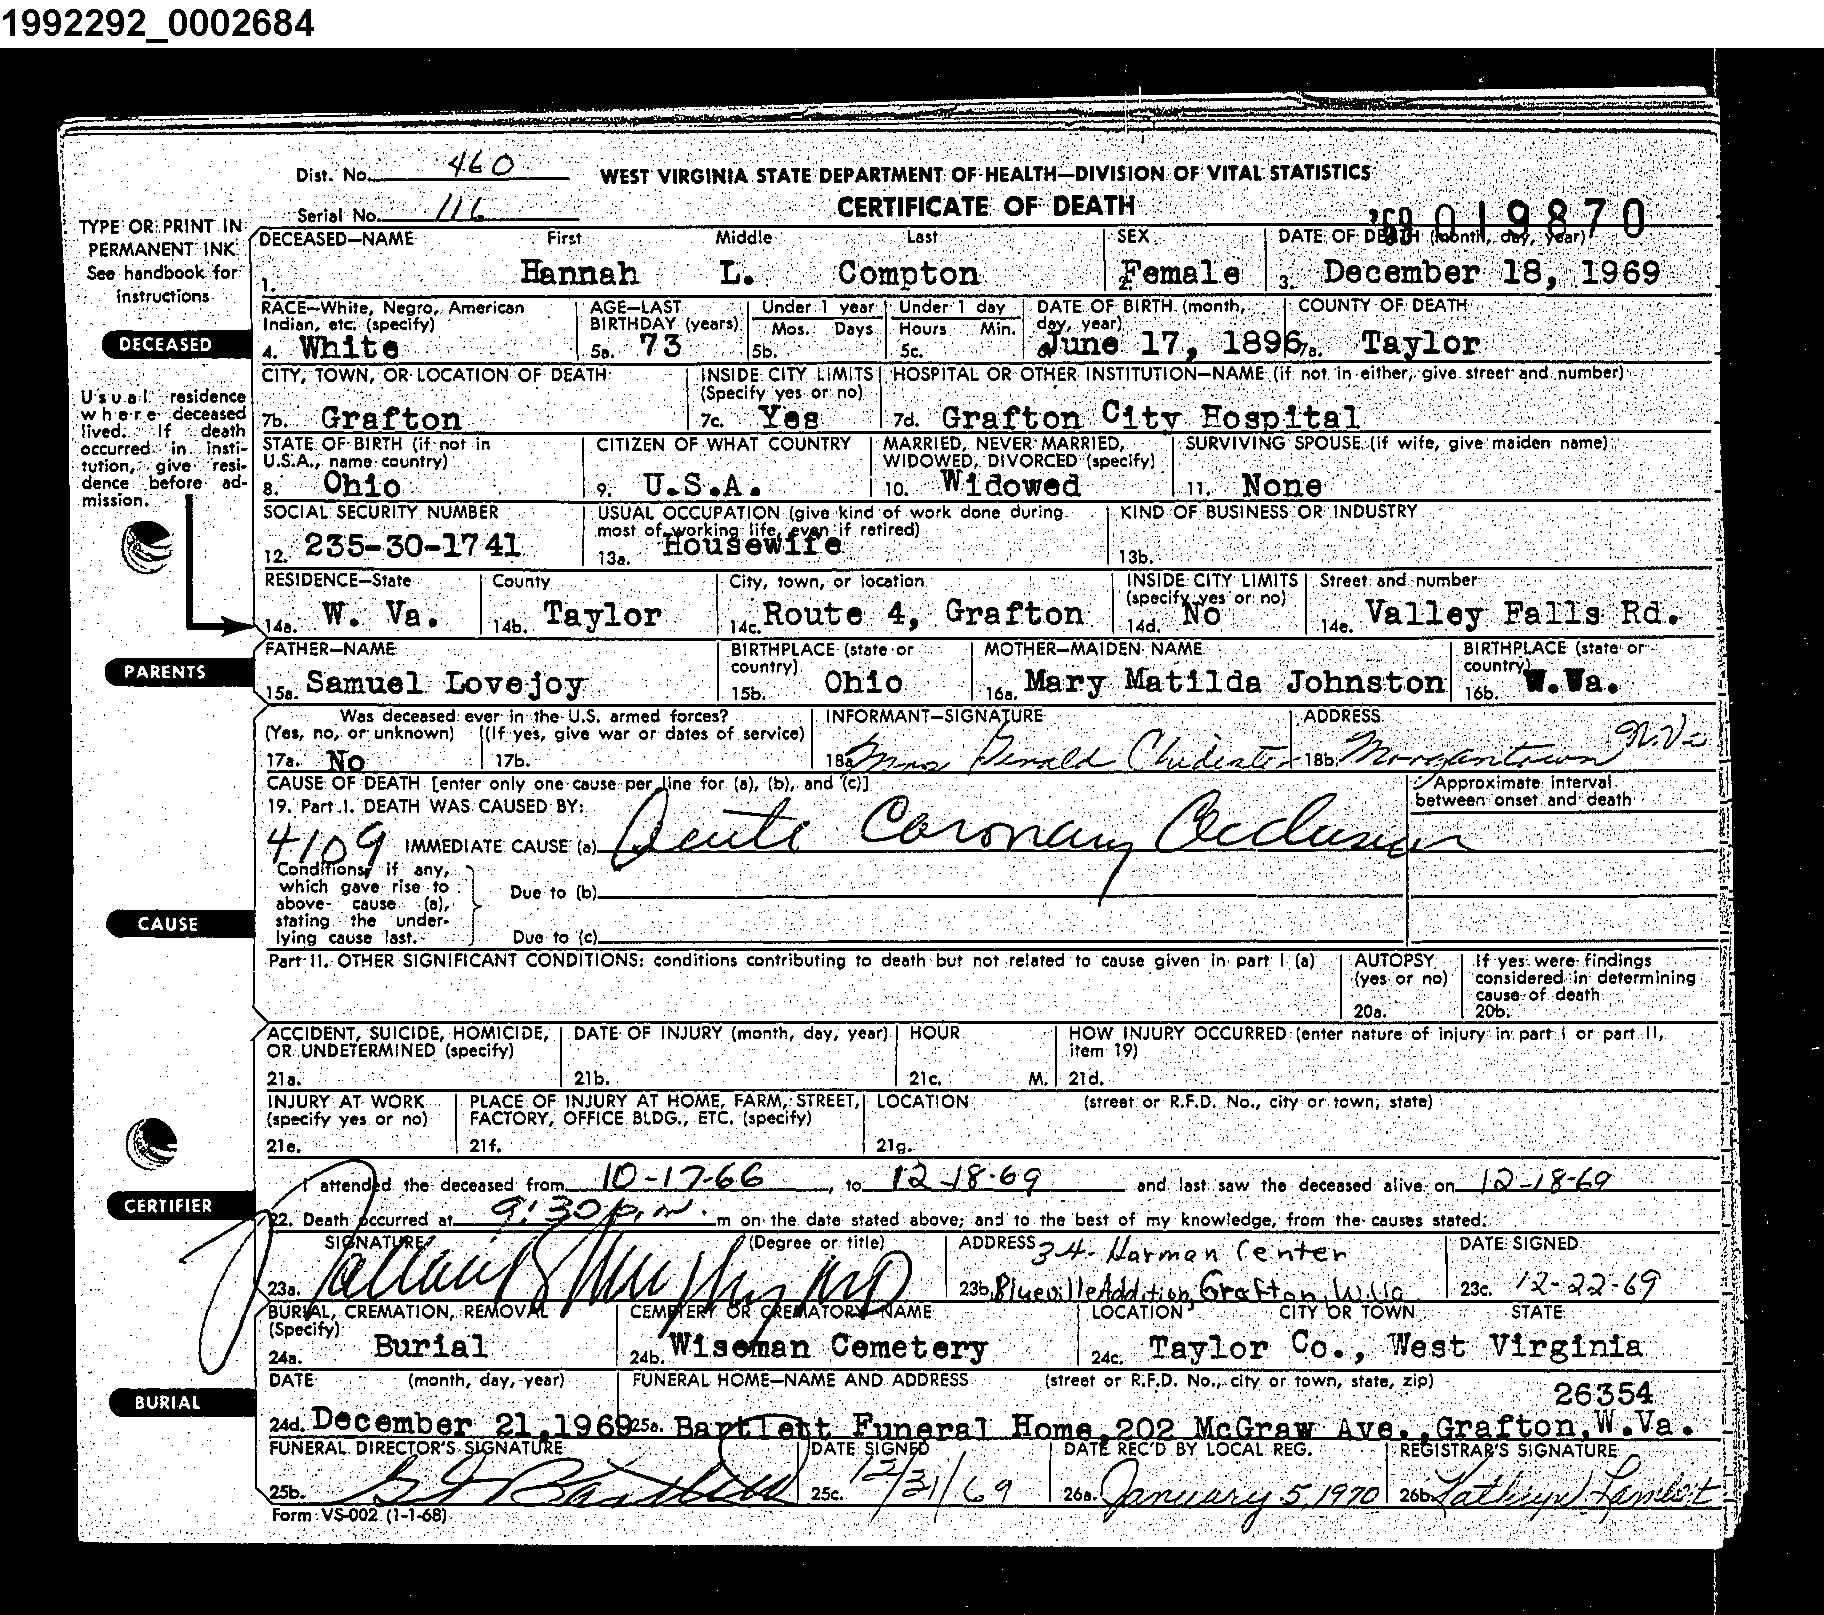 1992292_0002684
Dist. No. 460
WEST VIRGINIA STATE DEPARTMENT OF HEALTH—DIVISION OF VITAL STATISTICS
Serial No. 116
CERTIFICATE OF DEATH
'69 019870
TYPE OR PRINT IN
PERMANENT INK
See handbook for
instructions
DECEASED—NAME First Middle Last SEX DATE OF DEATH (month, day, year)
1. Hannah L. Compton 2. Female 3. December 18, 1969
RACE—White, Negro, American AGE—LAST Under 1 year Under 1 day DATE OF BIRTH (month, COUNTY OF DEATH
Indian, etc. (specify) BIRTHDAY (years) Mos. Days Hours Min. day, year)
DECEASED
4. White 5a. 73 5b. 5c. 6. June 17, 1896 7a. Taylor
CITY, TOWN, OR LOCATION OF DEATH INSIDE CITY LIMITS HOSPITAL OR OTHER INSTITUTION—NAME (if not in either, give street and number)
(Specify yes or no)
7b. Grafton 7c. Yes 7d. Grafton City Hospital
Usual residence
where deceased
lived. If death
occurred in insti-
tution, give resi-
dence before ad-
mission.
STATE OF BIRTH (if not in CITIZEN OF WHAT COUNTRY MARRIED, NEVER MARRIED, SURVIVING SPOUSE (if wife, give maiden name)
U.S.A., name country) WIDOWED, DIVORCED (specify)
8. Ohio 9. U.S.A. 10. Widowed 11. None
SOCIAL SECURITY NUMBER USUAL OCCUPATION (give kind of work done during KIND OF BUSINESS OR INDUSTRY
most of working life, even if retired)
12. 235-30-1741 13a. Housewife 13b.
RESIDENCE—State County City, town, or location INSIDE CITY LIMITS Street and number
(specify yes or no)
14a. W. Va. 14b. Taylor 14c. Route 4, Grafton 14d. No 14e. Valley Falls Rd.
PARENTS
FATHER—NAME BIRTHPLACE (state or MOTHER—MAIDEN NAME BIRTHPLACE (state or
country) country)
15a. Samuel Lovejoy 15b. Ohio 16a. Mary Matilda Johnston 16b. W.Va.
Was deceased ever in the U.S. armed forces? INFORMANT—SIGNATURE ADDRESS
(Yes, no, or unknown) (If yes, give war or dates of service)
17a. No 17b. 18a. Mrs Gerald Chidester 18b. Morgantown W.Va
CAUSE OF DEATH [enter only one cause per line for (a), (b), and (c)] Approximate interval
19. Part I. DEATH WAS CAUSED BY: between onset and death
4109 IMMEDIATE CAUSE (a) Acute Coronary Occlusion
Conditions, if any,
which gave rise to Due to (b)
above cause (a),
CAUSE
stating the under-
lying cause last. Due to (c)
Part II. OTHER SIGNIFICANT CONDITIONS: conditions contributing to death but not related to cause given in part I (a) AUTOPSY If yes were findings
(yes or no) considered in determining
cause of death
20a. 20b.
ACCIDENT, SUICIDE, HOMICIDE, DATE OF INJURY (month, day, year) HOUR HOW INJURY OCCURRED (enter nature of injury in part I or part II,
OR UNDETERMINED (specify) item 19)
21a. 21b. 21c. M. 21d.
INJURY AT WORK PLACE OF INJURY AT HOME, FARM, STREET, LOCATION (street or R.F.D. No., city or town, state)
(specify yes or no) FACTORY, OFFICE BLDG., ETC. (specify)
21e. 21f. 21g.
CERTIFIER
I attended the deceased from 10-17-66, to 12-18-69 and last saw the deceased alive on 12-18-69
22. Death occurred at 9:30 p.m. m on the date stated above; and to the best of my knowledge, from the causes stated.
SIGNATURE (Degree or title) ADDRESS 34- Harman Center DATE SIGNED
23a. MD 23b. Blueville Addition, Grafton, W.Va 23c. 12-22-69
BURIAL, CREMATION, REMOVAL CEMETERY OR CREMATORY NAME LOCATION CITY OR TOWN STATE
(Specify)
24a. Burial 24b. Wiseman Cemetery 24c. Taylor Co., West Virginia
BURIAL
DATE (month, day, year) FUNERAL HOME—NAME AND ADDRESS (street or R.F.D. No., city or town, state, zip)
26354
24d. December 21, 1969 25a. Bartlett Funeral Home, 202 McGraw Ave., Grafton, W.Va.
FUNERAL DIRECTOR'S SIGNATURE DATE SIGNED DATE REC'D BY LOCAL REG. REGISTRAR'S SIGNATURE
25b. Bartlett 25c. 12/31/69 26a. January 5, 1970 26b. Kathryn Lambert
Form VS-002 (1-1-68)